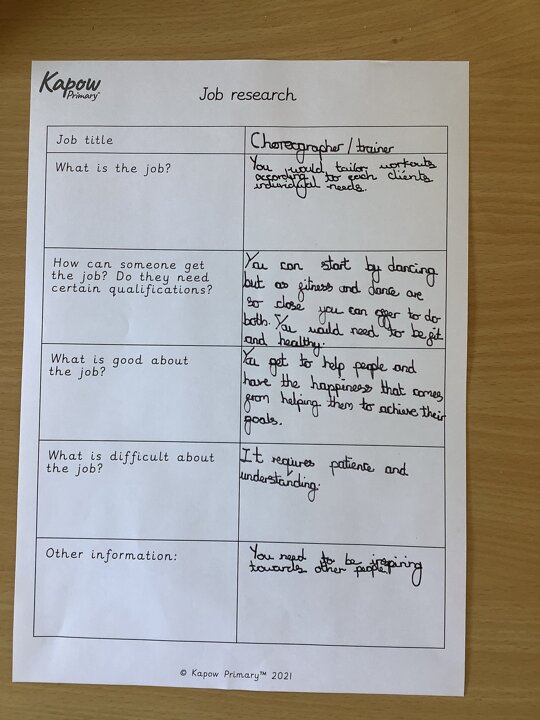 Kapow
Primary
Job research
Job title
Choreographer/trainer
What is the job?
You would tailor workouts
according to each clients
individual needs.
How can someone get
the job? Do they need
certain qualifications?
You can start by dancing
but as fitness and dance are
so close you can offer to do
both. You would need to be fit
and healthy.
What is good about
the job?
You get to help people and
have the happiness that comes
from helping them to achieve their
goals.
What is difficult about
the job?
It requires patience and
understanding.
Other information:
You need to be inspiring
towards other people!
© Kapow Primary™ 2021